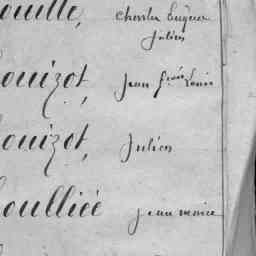 ouille, Charles Eugène
Julien
ouizot, Jean fçois Louis
ouizot, Julien
oulliée jean marie